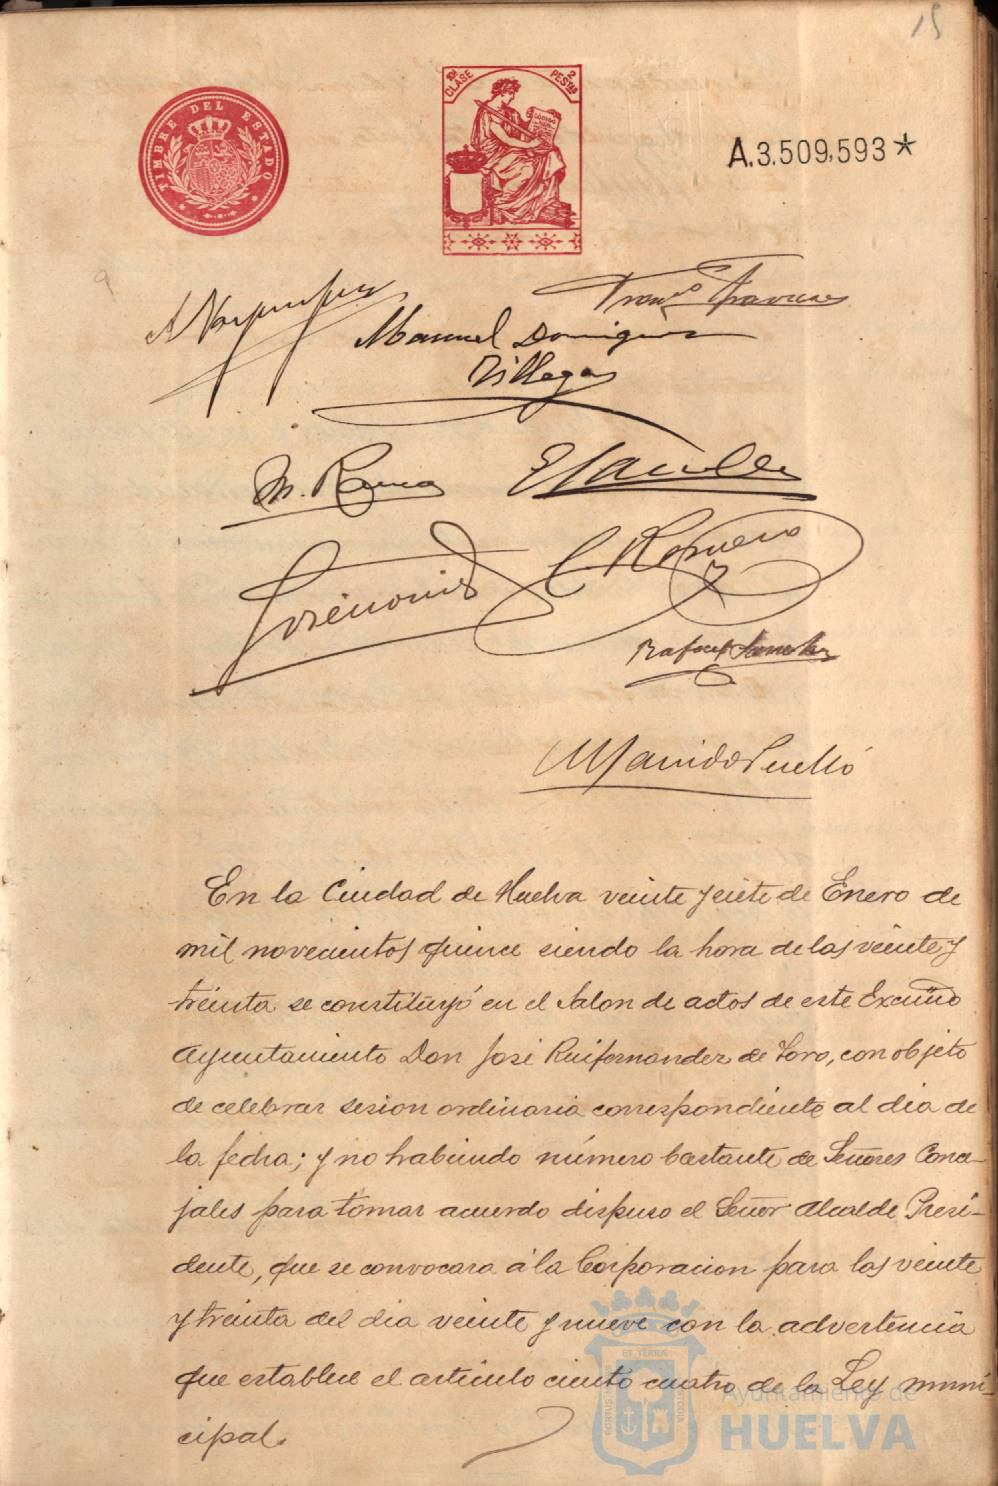 15
TIMBRE DEL ESTADO
10ª CLASE
2 PESTAS
A.3.509,593*
Manuel Dominguez
Villegas
E
C Romero
Rafael Sanchez
En la Ciudad de Huelva veinte y siete de Enero de
mil novecientos quince siendo la hora de las veinte y
treinta se constituyó en el Salon de actos de este Excmo
Ayuntamiento Don José Ruifernandez de Toro, con objeto
de celebrar sesion ordinaria correspondiente al dia de
la fecha; y no habiendo número bastante de Señores Conce-
jales para tomar acuerdo dispuso el Señor Alcalde Presi-
dente, que se convocara á la Corporacion para las veinte
y treinta del dia veinte y nueve con la advertencia
que establece el articulo ciento cuatro de la Ley muni-
cipal.
Ayuntamiento de
HUELVA